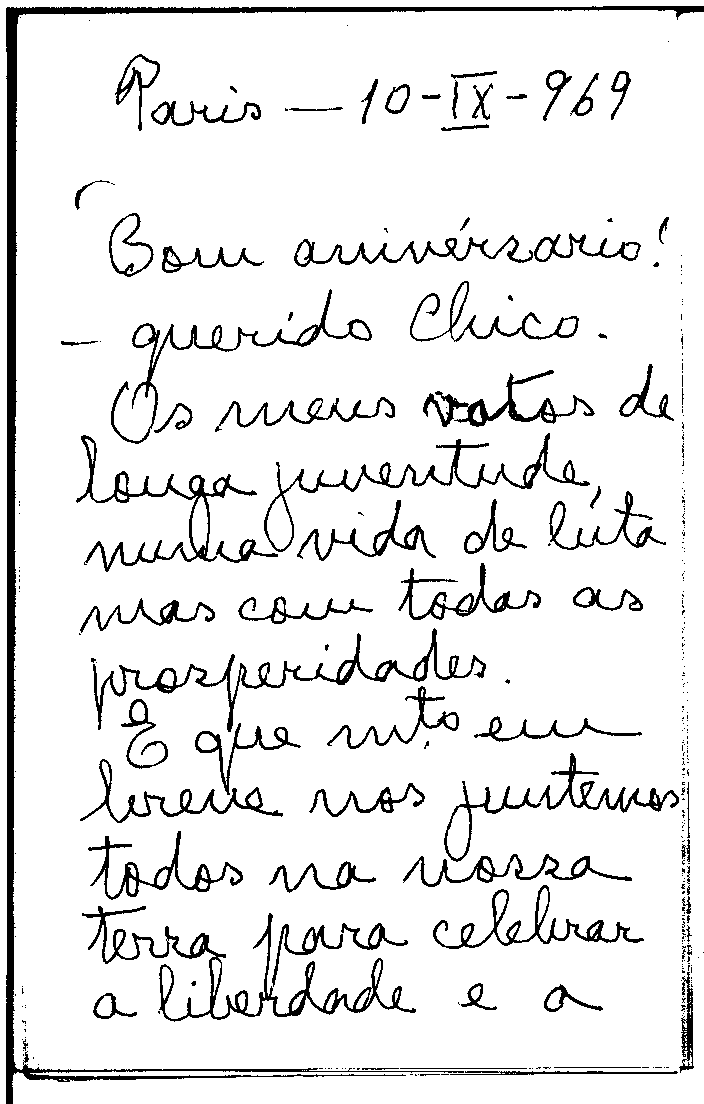 Paris — 10-IX-969
Bom anivérsario!
— querido Chico.
Os meus votos de
longa juventude,
numa vida de luta
mas com todas as
prosperidades.
E que mto em
breve nos juntemos
todos na nossa
terra para celebrar
a liberdade e a